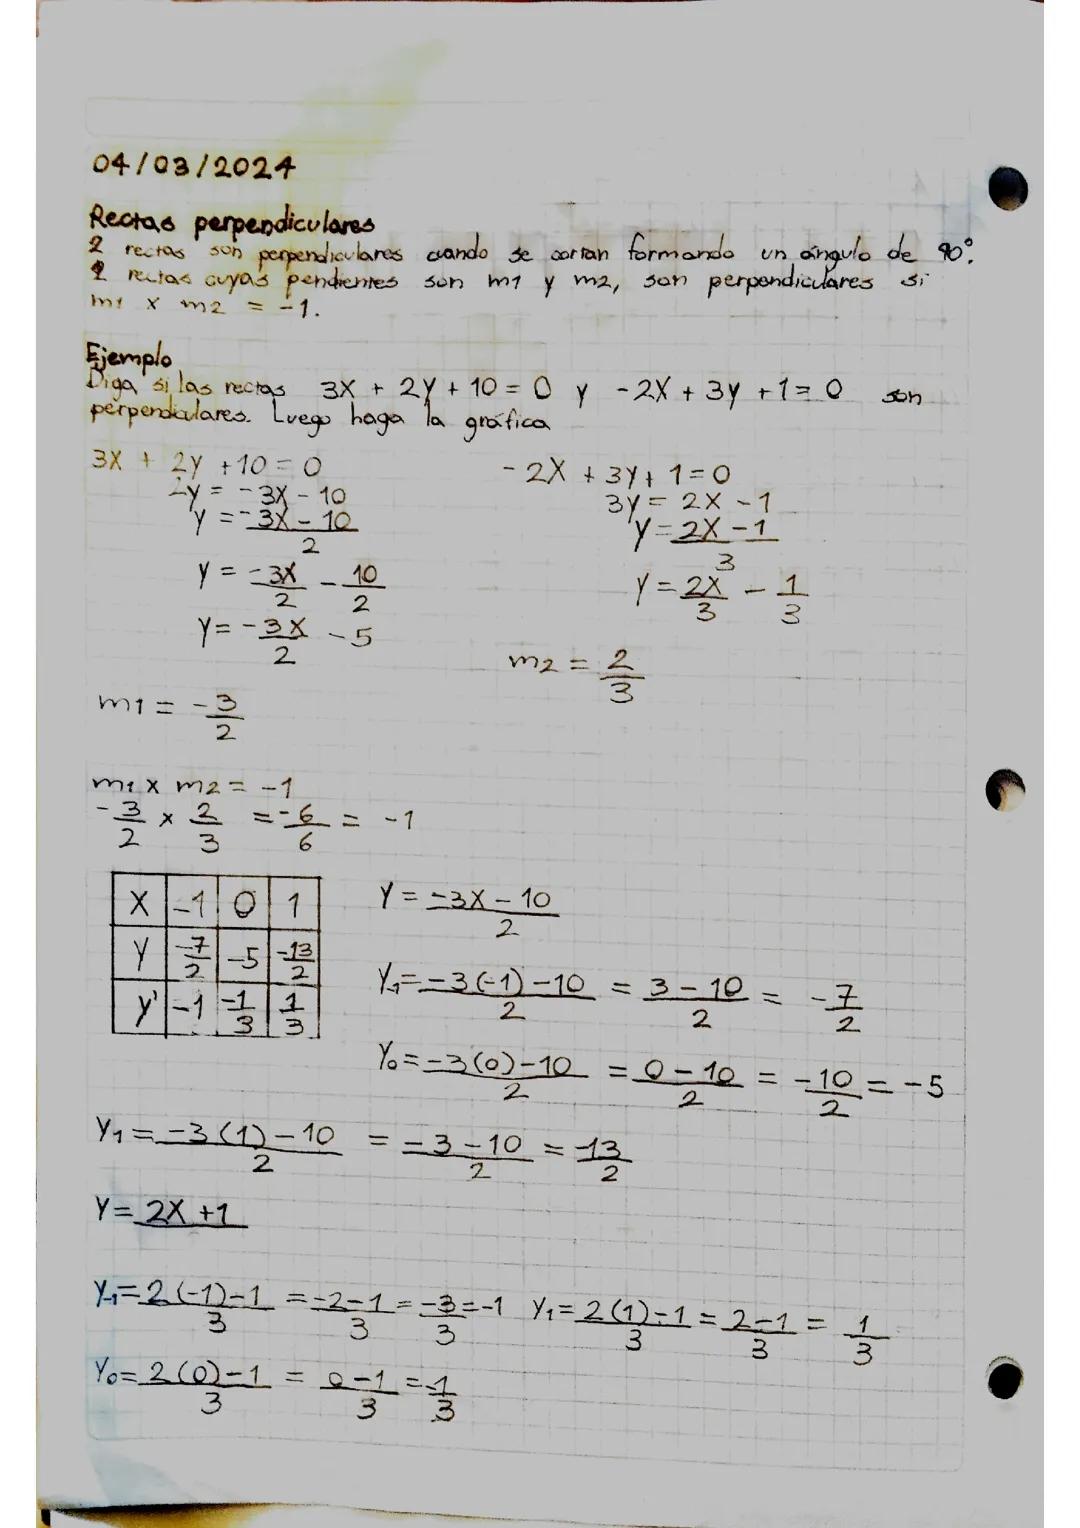 04/03/2024
Rectas perpendiculares
2 rectas son perpendiculares cuando se cortan formando un ángulo de 90°.
2 rectas cuyas pendientes son m1 y m2, son perpendiculares si
m1 x m2 = -1.
Ejemplo
Diga si las rectas 3X + 2Y + 10 = 0 y -2X + 3y + 1 = 0 son
perpendiculares. Luego haga la gráfica
3X + 2y + 10 = 0
2y = -3X - 10
y = (-3X - 10)/2
y = -3X/2 - 10/2
y = -3X/2 - 5
m1 = -3/2
-2X + 3y + 1 = 0
3y = 2X - 1
y = (2X - 1)/3
y = 2X/3 - 1/3
m2 = 2/3
m1 x m2 = -1
-3/2 x 2/3 = -6/6 = -1
X | -1 | 0 | 1
Y | -7/2 | -5 | -13/2
y' | -1 | -1/3 | 1/3
Y = (-3X - 10)/2
Y-1 = (-3(-1) - 10)/2 = (3 - 10)/2 = -7/2
Y0 = (-3(0) - 10)/2 = (0 - 10)/2 = -10/2 = -5
Y1 = (-3(1) - 10)/2 = (-3 - 10)/2 = -13/2
Y = 2X + 1
Y-1 = (2(-1) - 1)/3 = (-2 - 1)/3 = -3/3 = -1 Y1 = (2(1) - 1)/3 = (2 - 1)/3 = 1/3
Y0 = (2(0) - 1)/3 = (0 - 1)/3 = -1/3